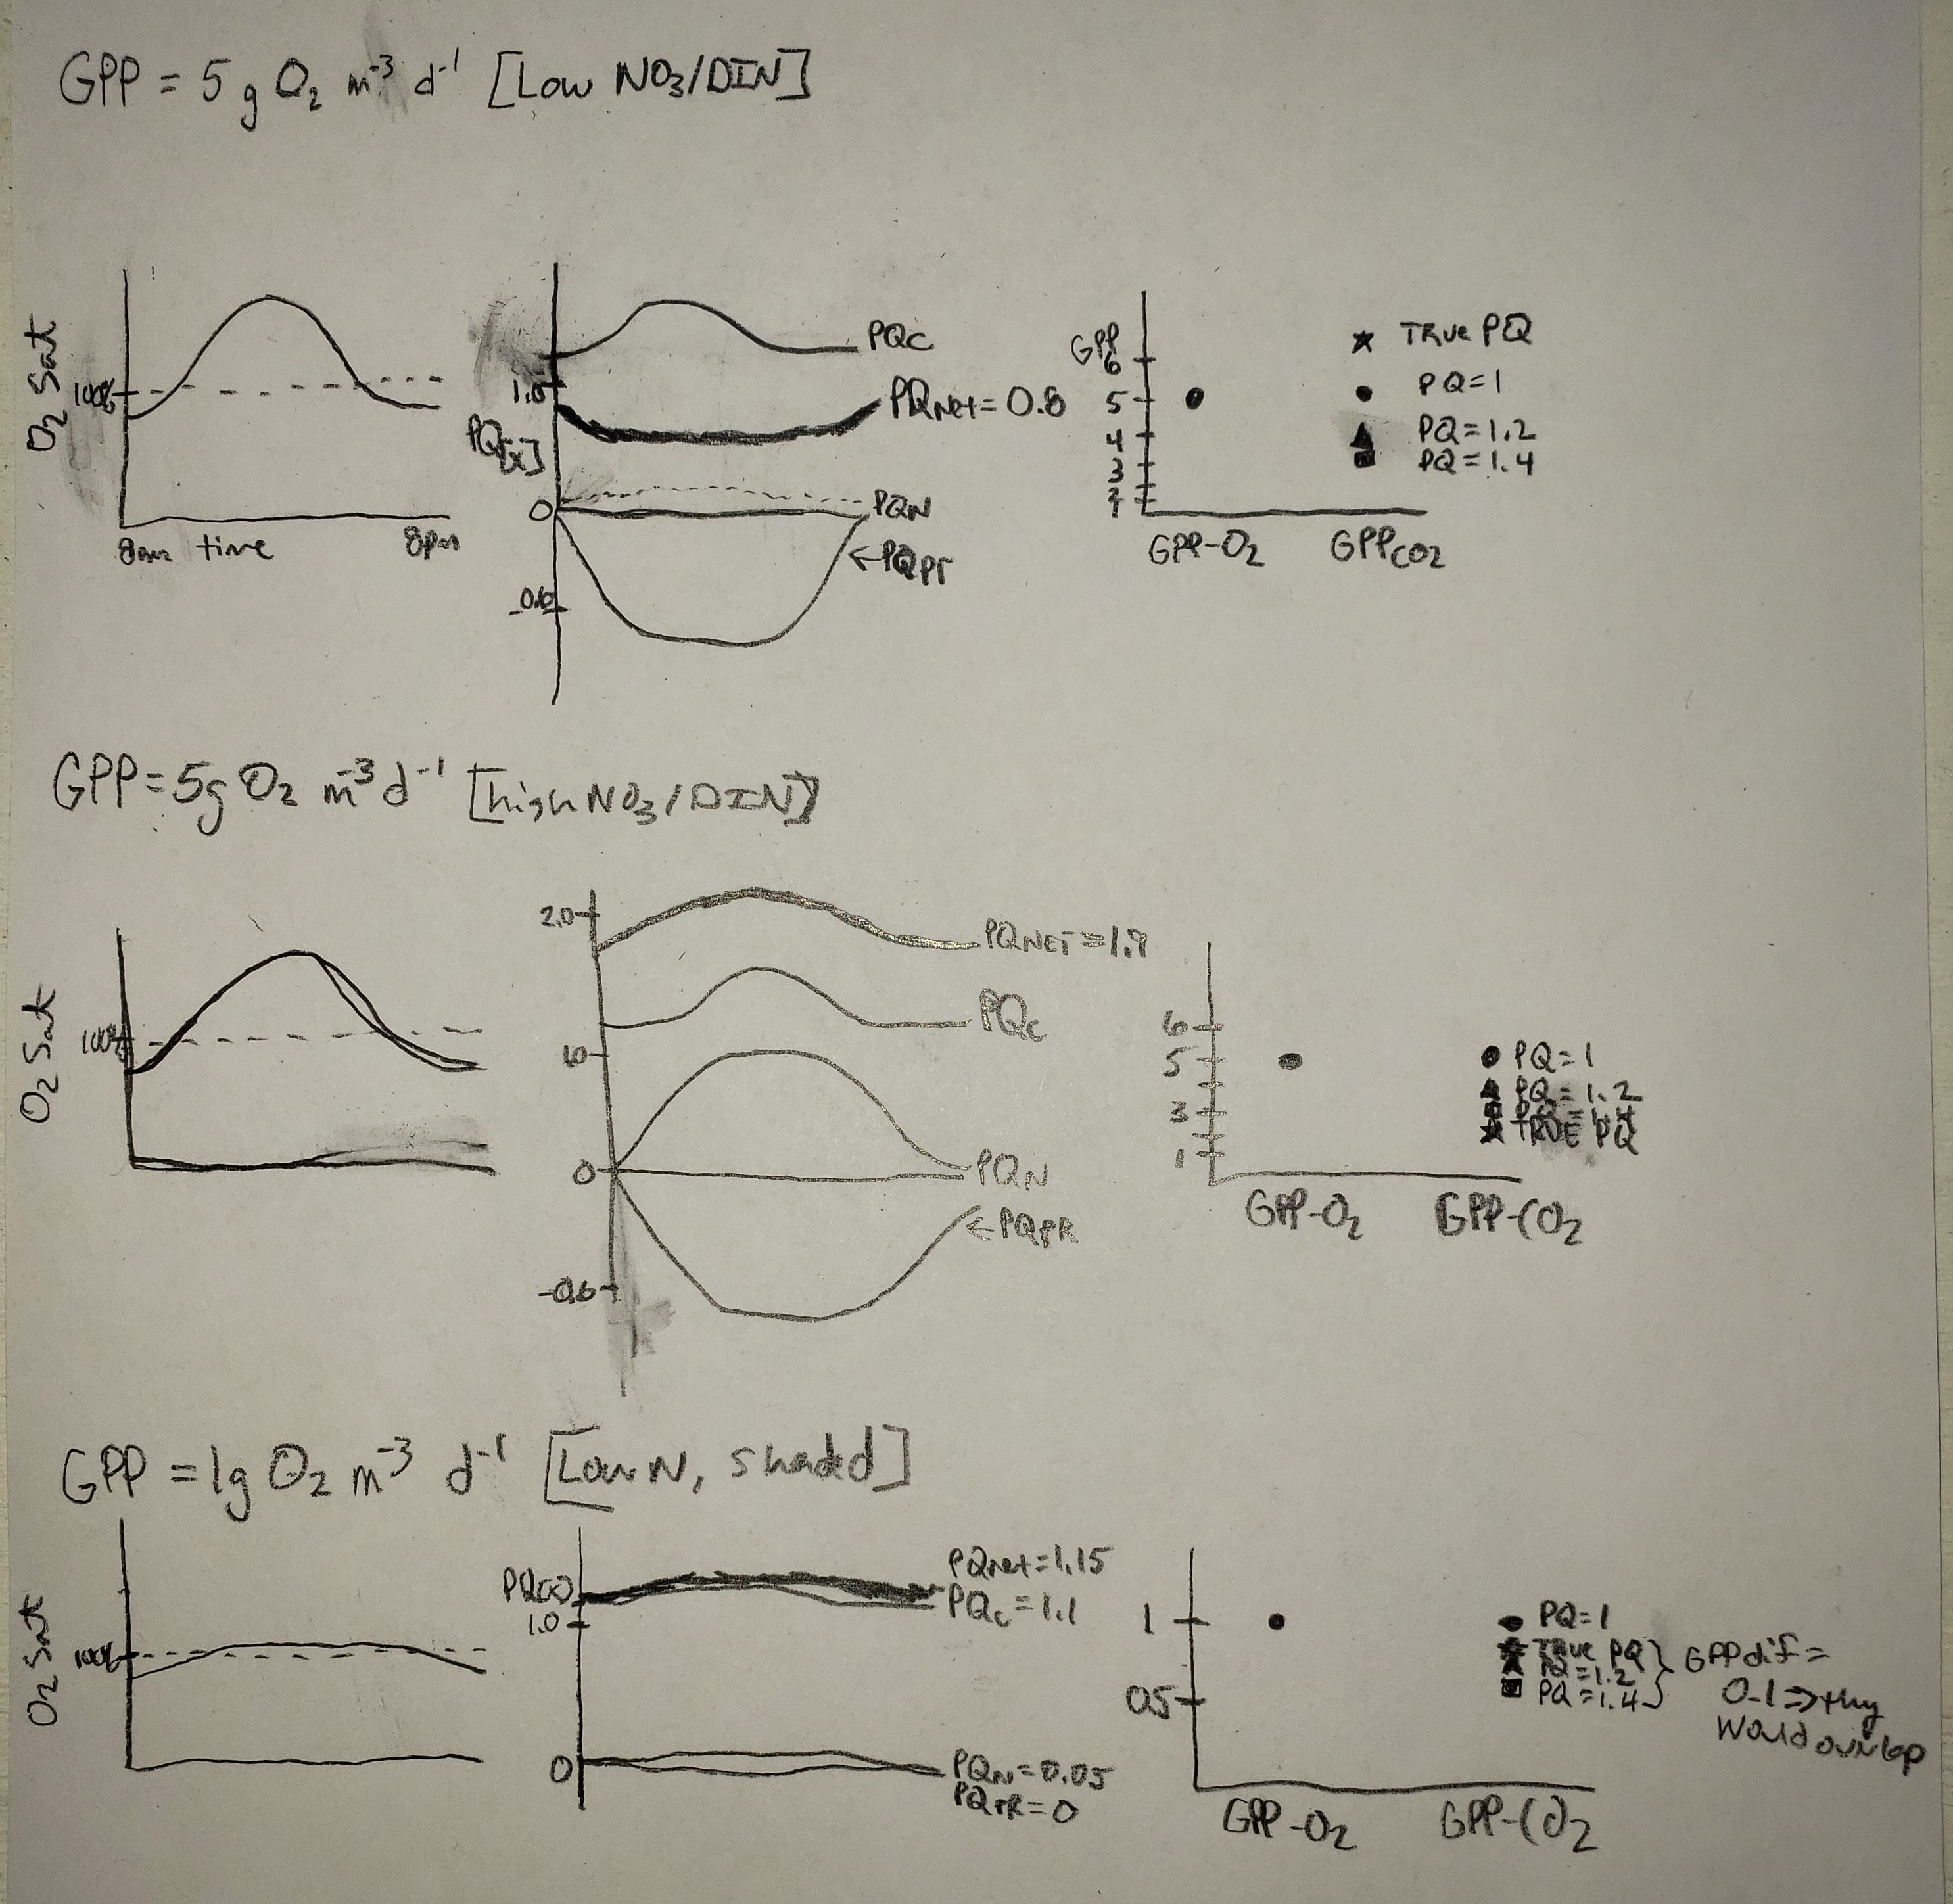 GPP = 5 g O2 m-3 d-1 [Low NO3/DIN]
O2 Sat
100%
8am time 8pm
PQ[x]
1.0
0
-0.6
PQC
PQNet = 0.8
PQN
←PQPR
GPP
6
5
4
3
2
1
GPP-O2 GPPCO2
★ TRUE PQ
● PQ=1
▲ PQ=1.2
■ PQ=1.4
GPP = 5g O2 m-3 d-1 [high NO3/DIN]
O2 Sat
100%
2.0
1.0
0
-0.6
PQNET = 1.9
PQC
PQN
←PQPR
6
5
3
1
GPP-O2 GPP-CO2
● PQ=1
▲ PQ=1.2
■ PQ=1.4
★ TRUE PQ
GPP = 1g O2 m-3 d-1 [Low N, shaded]
O2 Sat
100%
1.0
0
PQNet = 1.15
PQC = 1.1
PQN = 0.05
PQPR = 0
1
0.5
GPP-O2 GPP-CO2
● PQ=1
★ TRUE PQ
▲ PQ=1.2
■ PQ=1.4
GPP dif =
0.1 => they
would overlap